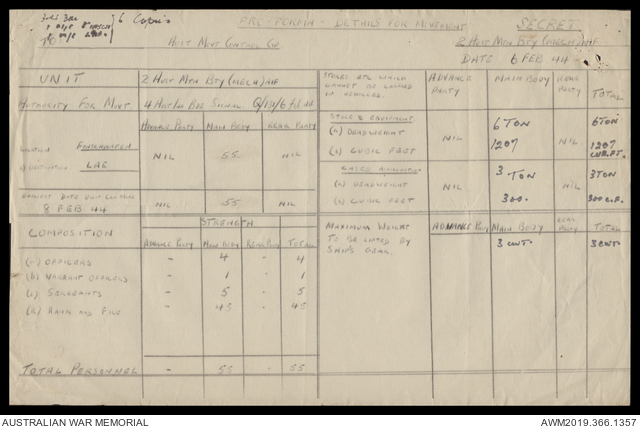 6 Copies
PRO-FORMA - DETAILS FOR MOVEMENT
SECRET
TO HQ MNT CONTROL
2 MTN BTY (MECH) AIF
DATE 6 FEB 44
UNIT
2 MTN BTY (MECH) AIF
AUTHORITY FOR MNT.
4 BDE SIGNAL
STORES ETC WHICH CANNOT BE LOADED IN VEHICLES.
ADVANCE PARTY
MAIN BODY
REAR PARTY
TOTAL
ADVANCE PARTY
MAIN BODY
REAR PARTY
LOCATION FINSCHHAFEN
DESTINATION LAE
NIL
55
NIL
STORES & EQUIPMENT
(a) DEADWEIGHT
(b) CUBIC FEET
NIL
6 TON
1207
NIL
6 TON
1207 CUB.FT.
EARLIEST DATE UNIT CAN MOVE
8 FEB 44
NIL
55
NIL
CASED AMMUNITION
(a) DEADWEIGHT
(b) CUBIC FEET
NIL
3 TON
300.
NIL
3 TON
300 C.F.
COMPOSITION
STRENGTH
ADVANCE PARTY
MAIN BODY
REAR PARTY
TOTAL
(a) OFFICERS
-
4
-
4
(b) WARRANT OFFICERS
-
1
-
1
(c) SERGEANTS
-
5
-
5
(d) RANK AND FILE
-
45
-
45
TOTAL PERSONNEL
-
55
-
55
MAXIMUM WEIGHT TO BE LIFTED BY SHIP'S GEAR.
ADVANCE PARTY
MAIN BODY
REAR PARTY
TOTAL
3 CWT.
3 CWT.
AUSTRALIAN WAR MEMORIAL
AWM2019.366.1357